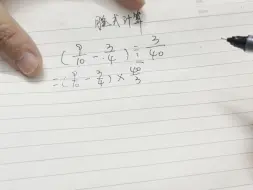 脱式计算
(9/10 - 3/4) ÷ 3/40
= (9/10 - 3/4) × 40/3